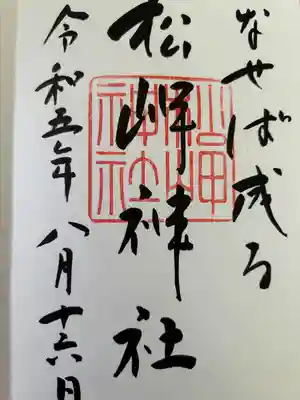 なせば成る
松岬神社
令和五年 八月十六日